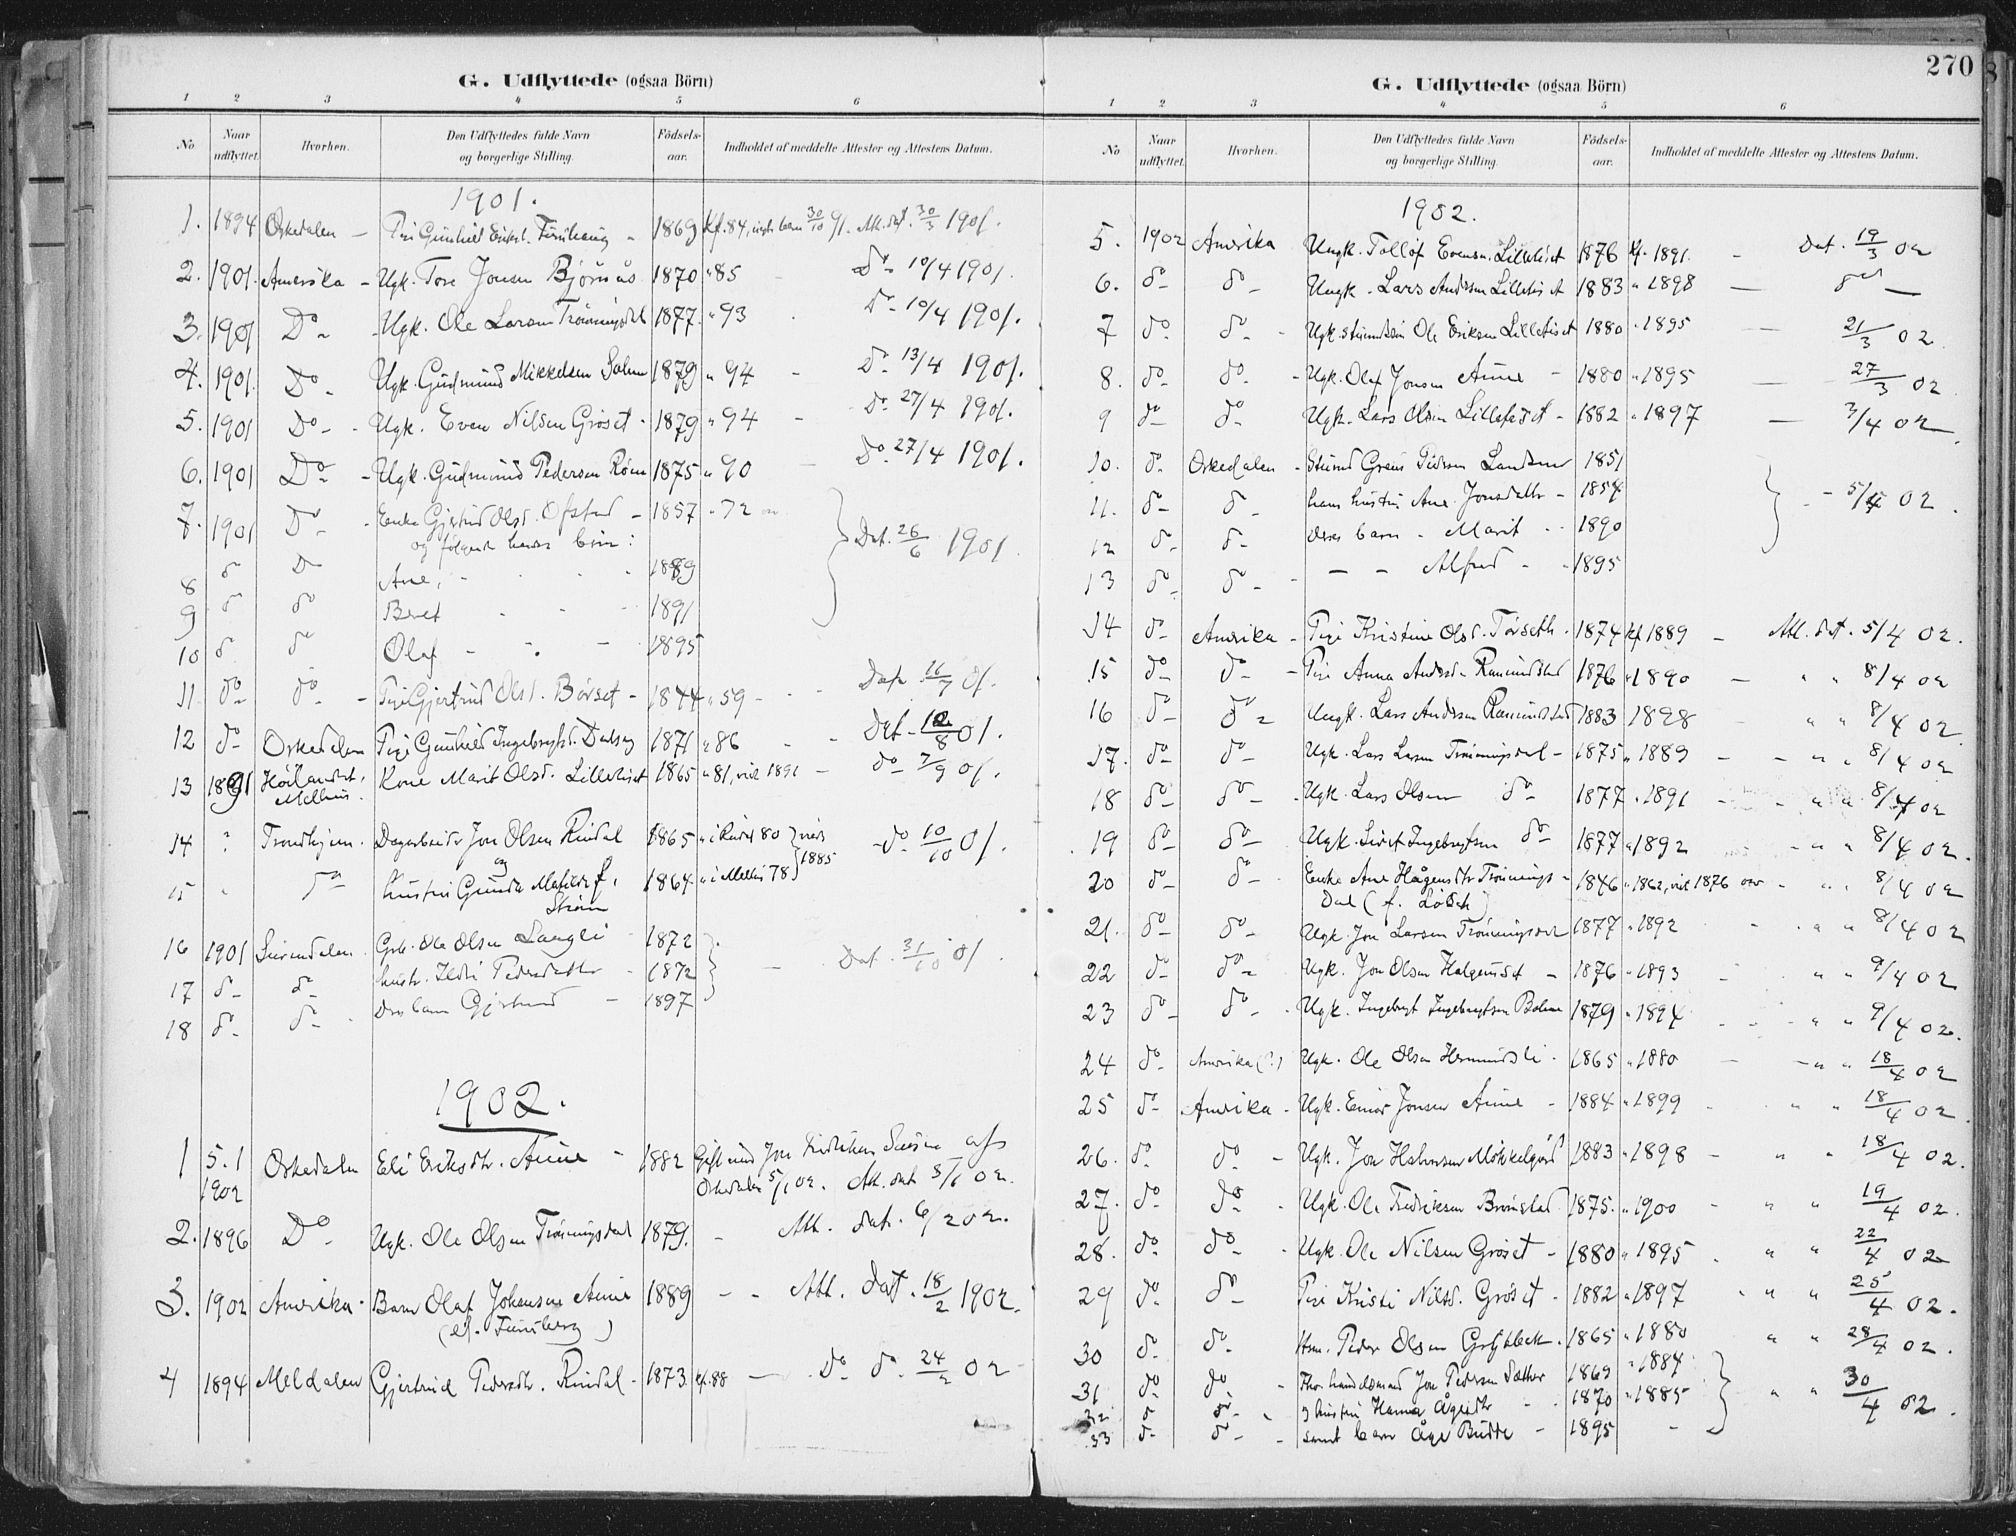 G. Udflyttede (ogsaa Börn)
1 2 3 4 5 6
No Naar udflyttet. Hvorhen. Den Udflyttedes fulde Navn og borgerlige Stilling. Födsels-aar. Indholdet af meddelte Attester og Attestens Datum.
1901.
1. 1894 Orkedalen – Pige Gunhild 1869 Kf. 84, 30/10 91. Att. dat. 30/3 1901.
2. 1901. Amerika – Ugk. Tore Jonsen Bjørnås 1870 " 85 – Do 10/4 1901.
3. 1901 Do – Ugk. Ole Larsen Trønningsdal 1877. " 93 Do 10/4 1901.
4. 1901. Do – Ugk. Gudmund Mikkelsen Bolme 1879 " 94 – Do 13/4 1901.
5. 1901 Do – Ugk. Even Nilsen Grøset – 1879 " 94 – Do 27/4 1901.
6. 1901 Do – Ugk. Gudmund Pedersen Røen 1875 " 90 – Do 27/4 1901.
7. 1901 Do – Enke Gjertrud Olsd. Ofstad – 1857 " 72
og følgende hendes börn: Dat. 26/6 1901
8 do Do Ane, 1889
9 do do Beret 1891
10 do do Olaf – – – 1895
11 do do – Pige Gjertrud Olsd. Børset – 1844 " 59 – Dat. 16/7 01.
12 do Orkedalen Pige Gunhild Ingebrigtsd. Dalseg 1871 " 86 Dat. 12/8 01.
13 1891 Høilandet, Melhus. Kone Marit Olsd. Lillehist 1865 " 81, viet 1891 – do 7/9 01.
14 " Trondhjem. Dagarbeider Jon Olsen Rindal 1865 " i Rindal 80 viede 1885 do 10/10 01.
15 " do og hustru Gunda Matilde f. Strøm 1864 " i Melhus 78
16 1901 Surendalen Grb. Ole Olsen Langli 1872
17 do do hustr. Ildri Pedersdatter – 1872 – Dat. 31/10 01
18 do do Deres barn Gjertrud – 1897
1902.
1 5.1 1902 Orkedalen Eli Eriksdtr. Aune – 1882 Gift med Jon
Orkedalen 5/1 02. Att. dat. 5/1 02.
2. 1896 Do Ugk. Ole Olsen Trønningsdal 1879. – Att. dat. 6/2 02.
3. 1902 Amerika – Barn Olaf Johansen Aune 1889 – – Att. dat. 18/2 1902.
4 1894 Meldalen Gjertrud Pedersdtr. Rindal – 1873 Kf. 88 – Do do 24/2 02
270
G. Udflyttede (ogsaa Börn)
1 2 3 4 5 6
No Naar udflyttet. Hvorhen. Den Udflyttedes fulde Navn og borgerlige Stilling. Födsels-aar. Indholdet af meddelte Attester og Attestens Datum.
1902.
5. 1902 Amerika Ungk. Tollof Evensen Lillehist 1876 Kf. 1891. – Dat. 19/3 02
6. do do – Ungk. Lars Andersen Lillehist 1883 " 1898 – do –
7 do do – Ugk. Ole Eriksen Lillehist 1880 " 1895 – 21/3 02.
8. do do – Ugk. Olaf Jonsen Aune – 1880 " 1895 – 27/3 02
9 do do – Ugk. Lars Olsen Lillehist – 1882 " 1897 – 3/4 02.
10. do Orkedalen – 1851
11. do do – hans hustru Ane Jonsdatter – 1854 – 5/4 02.
12 do do – deres barn – Marit – 1890
13 do do – – – Alfred – 1895
14 do Amerika – Pige Kristine Olsd. Tørseth. 1874 Kf 1889 – Att. dat. 5/4 02.
15 do do – Pige Anna Andersd. Romundstad 1876 " 1890 – " " 8/4 02
16 do do – Ungk. Lars Andersen Romundstad 1883 1898 – " " 8/4 02
17. do do – Ugk. Lars Larsen Trønningsdal – 1875 " 1889 – " " 8/4 02
18 do do – Ugk. Lars Olsen do – 1877 " 1891 – " " 8/4 02
19 do do – Ugk. Sivert Ingebrigtsen do – 1877 " 1892 – " " 8/4 02.
20 do do – Enke Ane Hågensdtr Trønnings- 1846 " 1862, viet 1876 – " " 8/4 02
dal
21. do do – Ugk. Jon Larsen Trønningsdal 1877 " 1892 " " 8/4 02
22 do do – Ugk. Jon Olsen – 1876 " 1893 " " 9/4 02
23 do do – Ugk. Ingebrigt Ingebrigtsen Bolme 1879 " 1894 – " " 9/4 02.
24 do Amerika (?) Ugk. Ole Olsen Hermundsli 1865 " 1880 – " " 18/4 02
25 do Amerika – Ugk. Einar Jonsen Aune – 1884 " 1899 " " 18/4 02
26. do do – Ugk. Jon Halvorsen Mökkelgård 1883 " 1898 – " " 18/4 02.
27. do do – Ugk. Ole Fredriksen Brønstad 1875. " 1900 – " " 19/4 02.
28. do do – Ugk. Ole Nilsen Grøset – 1880 " 1895 " " 22/4 02
29 do do – Pige Kristi Nilsd. Grøset – 1882 " 1897 " " 25/4 02.
30 do do – Hsm. Peder Olsen 1865 " 1880 " " 28/4 02.
31 do do – Jon Pedersen Sæther 1869 " 1884 " " 30/4 02.
32 do do – og hustru Hanna Ågesdtr 1870 " 1885
33 do do – samt barn Åge Budde – 1895 –